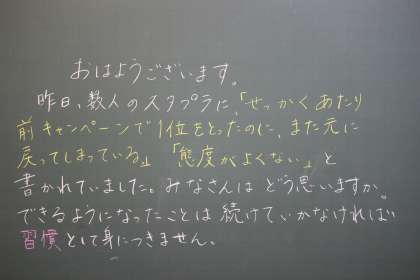 おはようございます。
昨日、数人のスタプラに、「せっかくあたり
前キャンペーンで1位をとったのに、また元に
戻ってしまっている」「態度がよくない」と
書かれていました。みなさんはどう思いますか。
できるようになったことは続けていかなければ
習慣として身につきません。